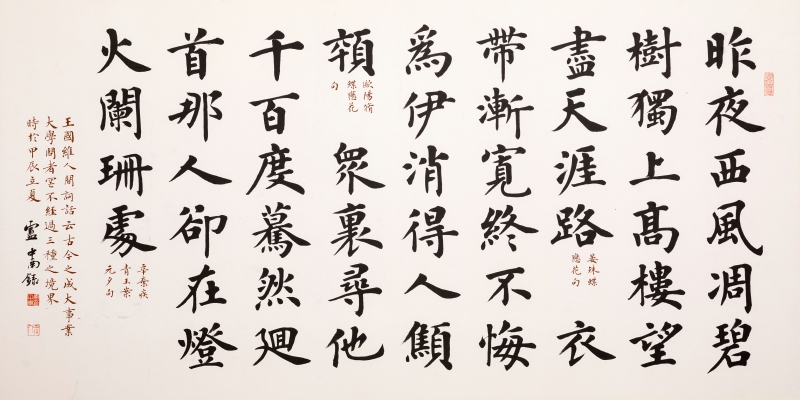 昨夜西風凋碧
樹獨上高樓望
盡天涯路
晏殊蝶
戀花句
衣
帶漸寬終不悔
爲伊消得人顦
顇
歐陽脩
蝶戀花
句
眾裏尋他
千百度驀然迴
首那人卻在燈
火闌珊處
辛棄疾
青玉案
元夕句
王國維人間詞話云古今之成大事業
大學問者罔不經過三種之境界
時於甲辰立夏 盧中南錄